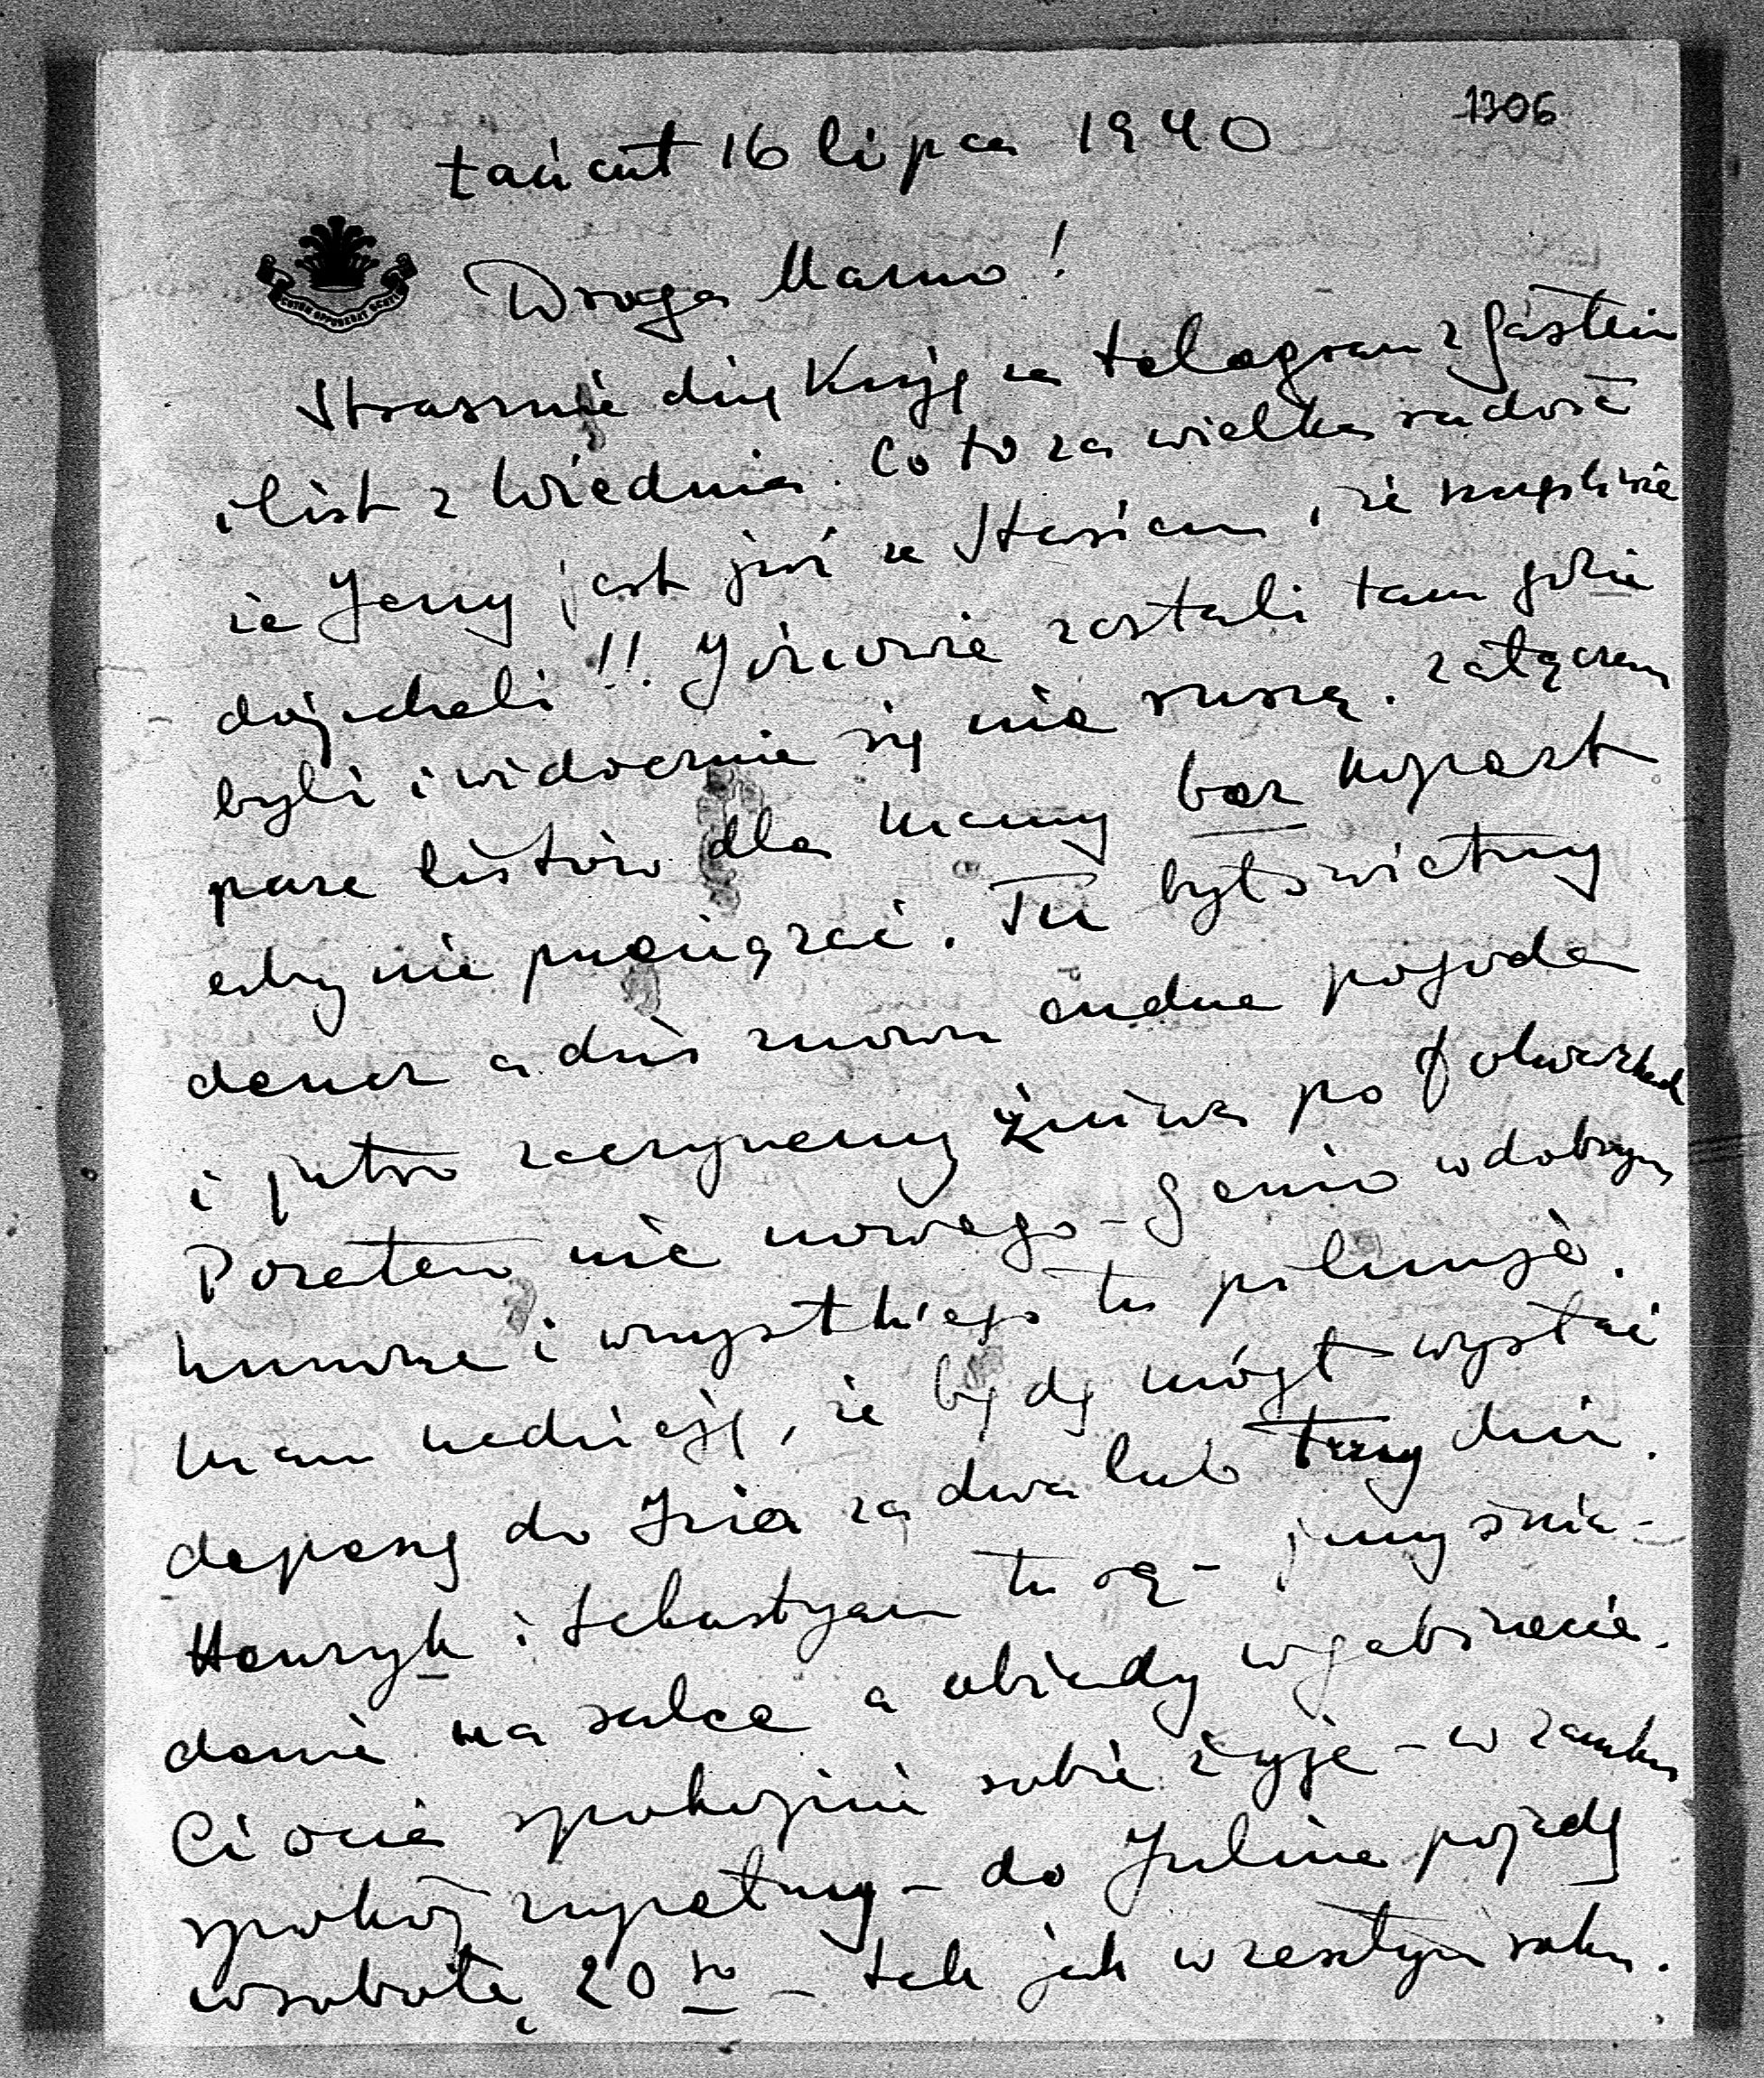 1306
Łańcut 16 lipca 1940
Droga Mamo!
Strasznie dziękuję za telegram z Gastein
i list z Wiednia. Co to za wielka radość
że Jerzy jest już ze Stasiem, że szczęśliwie
dojechali!! Józiowie zostali tam gdzie
byli i widocznie się nie ruszą. Załączam
parę listów dla Mamy bez kopert
aby nie przeciążać. Tu był świetny
deszcz a dziś znowu cudna pogoda
i jutro zaczynamy żniwa po folwarkach
Pozatem nic nowego - Genio w dobrym
humorze i wszystkiego tu pilnuje.
Mam nadzieję, że będę mógł wysłać
depeszę do Izia za dwa lub trzy dni.
Henryk i Sebastyan tu są - jemy śnia-
danie na salce a obiady w gabinecie.
Ciocia spokojnie sobie żyje - w zamku
spokój zupełny - do Julina pojadę
w sobotę 20 go - tak jak w zeszłym roku.